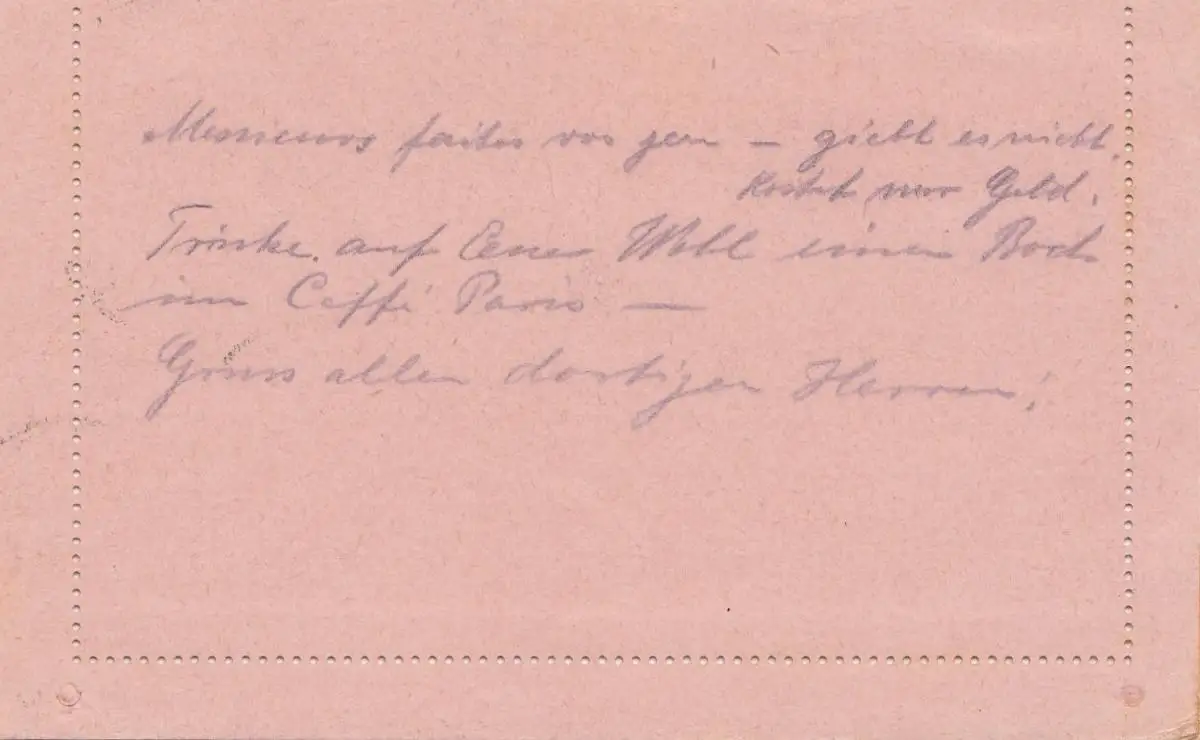 Messieurs faites vos jeu — giebt es nicht.
Kostet nur Geld.
Trinke auf Euer Wohl einen Bock
im Caffé Paris —
Gruss allen dortigen Herren!